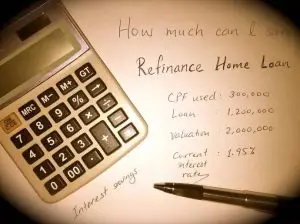 How much can I
Refinance Home Loan
CPF used : 300,000
Loan : 1,200,000
Valuation : 2,000,000
Current interest rate : 1.95%
Interest savings
GT
MRC M- M+ %
7 8 9
4 5 6
1 2 3 +
0 00 .